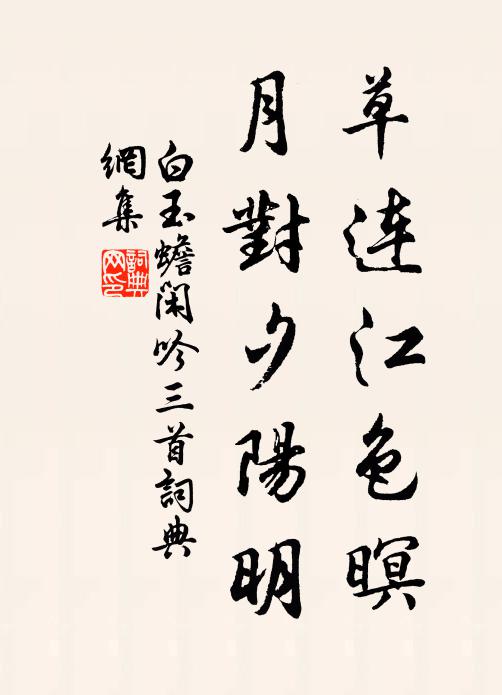 草連江色暝
月對夕陽明
白玉蟾閑吟三首詞典
網集
詞典
网印